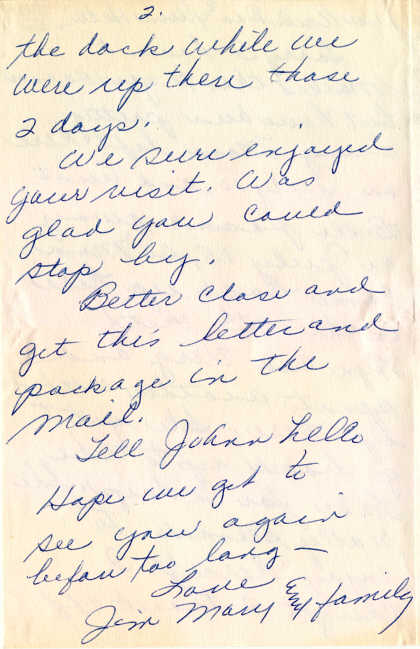 2.
the dock while we
were up there those
2 days.
We sure enjoyed
your visit. Was
glad you could
stop by.
Better close and
get this letter and
package in the
mail.
Tell JoAnn hello
Hope we get to
see you again
before too long —
Love
Jim Mary & family